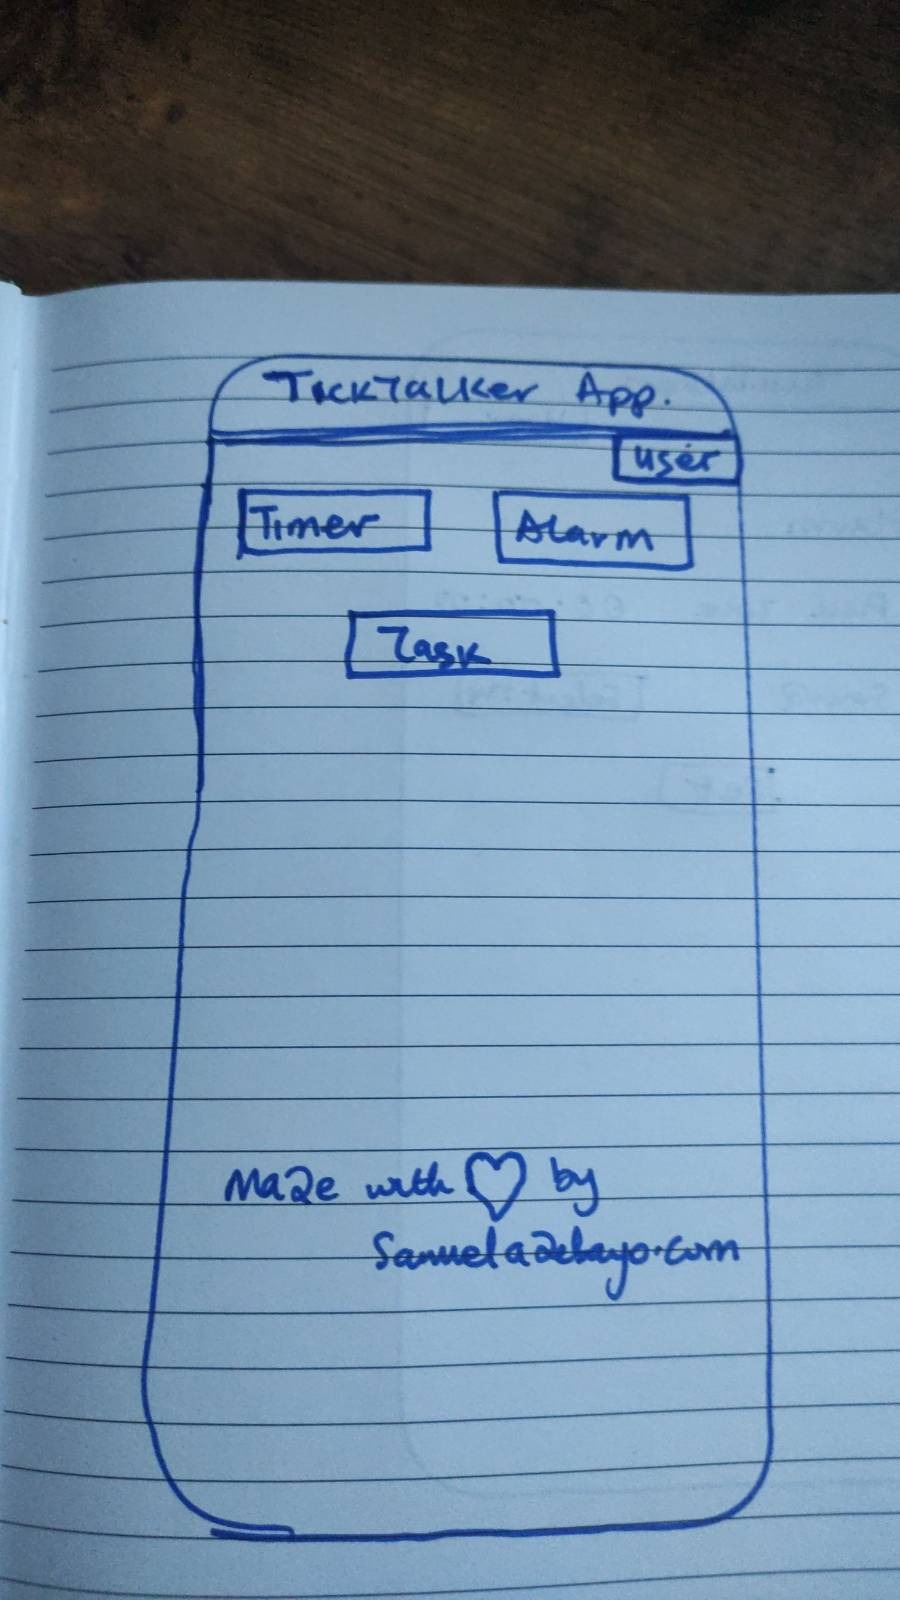 TickTalker App.
user
Timer
Alarm
Task
Made with ♡ by
Samueladelayo.com